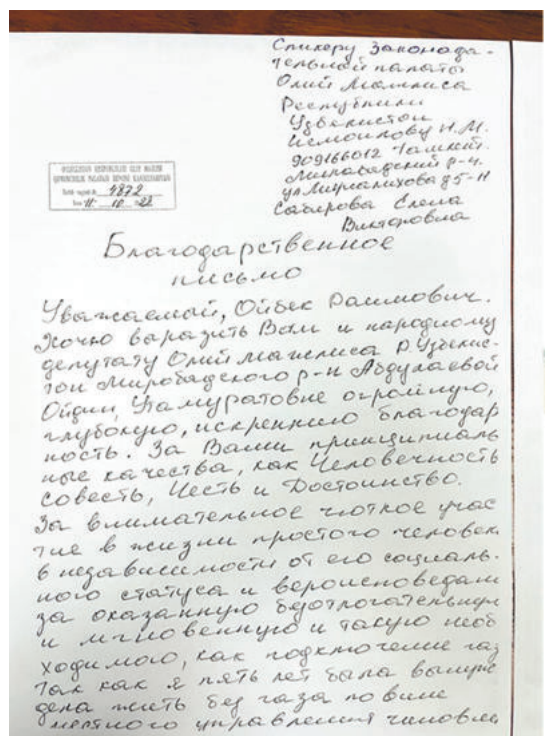 Спикеру Законода-
тельной палаты
Олий Мажлиса
Республики
Узбекистон
Исмоилову Н.М.
909166012 Ташкент.
Мирабадский р-н.
Сабирова Елена
Викторовна
4872
11 10 22
Благодарственное
письмо
Уважаемый, Ойбек Раимович.
Хочю выразить Вам и народному
депутату Олий Мажлиса Р. Узбекис-
тон Миробадского р-н Абдулаевой
Ойдин, Памуратовне огромную,
глубокую, искреннию благодар
ность. За Ваши принципиаль
ные качества, как Человечность
совесть, Честь и Достоинство.
За внимательное чоткое учас
тие в жизни простого человек
в независимости от его социаль-
ного статуса и вероисповедани
за оказанную безотлогательную
и мгновенную и такую необ
ходимою, как подключение газ
Так как я пять лет была вынуж
дена жить без газа по вине
местного управления